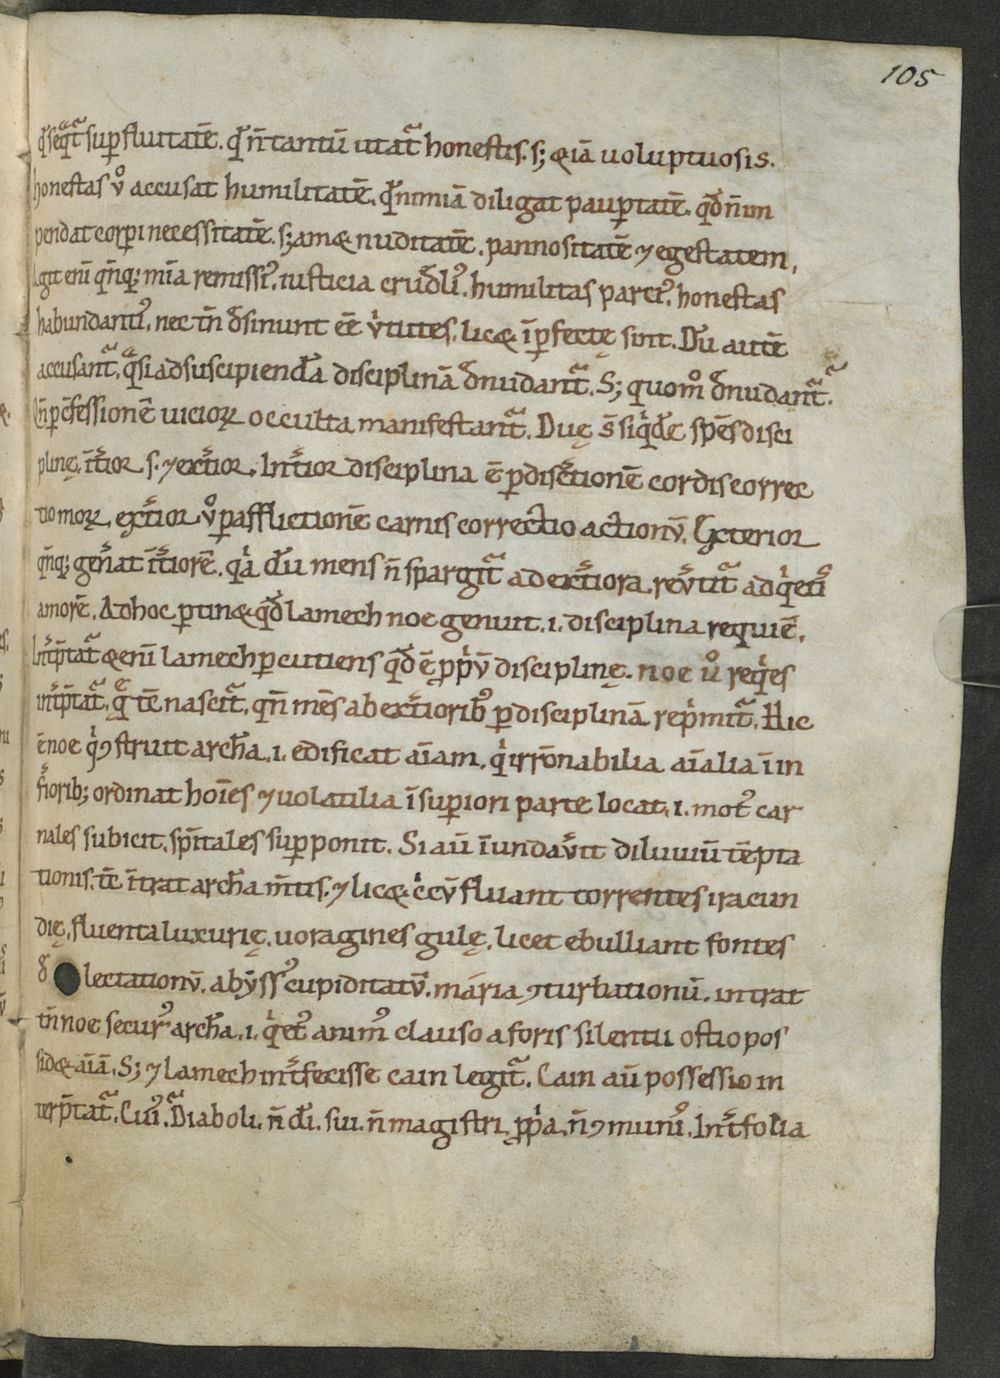 105
q̄ seq̄t̃ sup̱fluitatē. q̄ n̄ tantū utat̃ honestis. s; &iā uoluptuosis.
honestas ů accusat humilitatē. q̄ nimiā diligat paup̱tatē. qđ n̄ im
pendat corp̱i necessitatē. s; am& nuditatē. pannositatē ⁊ egestatem,
Agit eni q̄nq; mīa remissi᷒. iusticia crudeli᷒. humilitas parci᷒. honestas
habundanti᷒. nec tn̄ đsinunt eē ůtutes. lic& īp̱fectę sint. Dū autē
accusant̃. q̄si ad suscipienđa disciplinā đnudant̃. S; quom̊ đnudant̃.
Cū p̱ c̄fessionē uicioꝝ occulta manifestant̃. Duę s̄ siq̇đe sp̄es disci
plinę. īt̃ior s. ⁊ ext̃ior. Int̃ior disciplina ē p̱ disc̃tionē cordis correc
tio moꝝ. ext̃ior ů p̱ afflictionē carnis correctio actionū. Exterior
q̄nq; gen̄at īt̃iorē. q̇a dū mens n̄ spargit̃ ad ext̃iora. reůtit̃ ad q̇eti᷒
amorē. Ad hoc p̱tin& qđ lamech noe genuit .i. disciplina requiē.
Int̃p̄tat̃ &eni lamech p̱cutiens qđ ē p̱ṗū disciplinę. noe ů req̇es
int̃p̄tat̃. q̄ tē nascit̃. qn̄ mēs ab ext̃iorib᷒ p̱ disciplinā reṗmit̃. Hic
ē noe q̇ ꝯstruit archā .i. edificat aīam. q̇ irrōnabilia aīalia ī in
f̃iorib; ordinat hoīes ⁊ uolatilia ī sup̱iori parte locat .i. mot᷒ car
nales subicit. sp̄itales sup̱ponit. Si aū īundaůit diluuiū tēpta
tionis. tē ītrat archā m̄tis. ⁊ lic& ċcū fluant torrentes iracun
dię. fluenta luxurię. uoragines gulę. licet ebulliant fontes
đlectationū. abyss᷒ cupiditatū. maria ꝯturbationū. intrat
tn̄ noe secur᷒ archā .i. q̇et᷒ animū clauso a foris silentii ostio pos
sid& aīā. S; ⁊ lamech int̃fecisse cain legit̃. Cain aū possessio in
terp̄tat̃. Cui᷒. Diaboli. n̄ đi. sui. n̄ magistri. p̱ṗa. n̄ ꝯmuni᷒. Int̃ folia